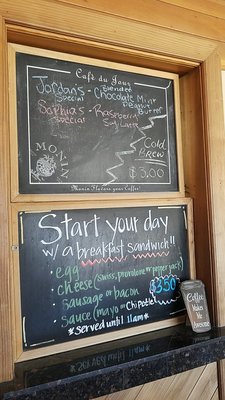 Café du Jour
Jordan's - Blended
Special Chocolate Mint
Peanut
Butter
Sophia's - Raspberry
Special Soy Latte
Cold
Brew
$3.00
MONIN
Monin Flavors your Coffee!
Start your day
w/a breakfast sandwich!!
• egg
• cheese (swiss, provolone or pepper jack)
• sausage or bacon
• sauce (mayo or chipotle)
$3.50
*Served until 11am*
Coffee
Makes Me
Awesome